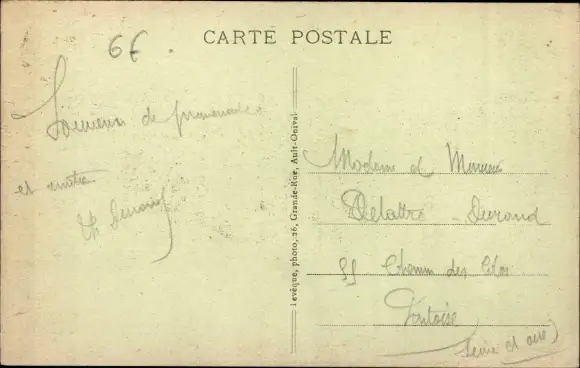 6f
CARTE POSTALE
Souvenir de promenade
et
Levêque, photo, 26, Grande-Rue, Ault-Onival
Madame et Monsieur
Delattre - Durand
55 Chemin des Clos
Pontoise
(Seine et Oise)